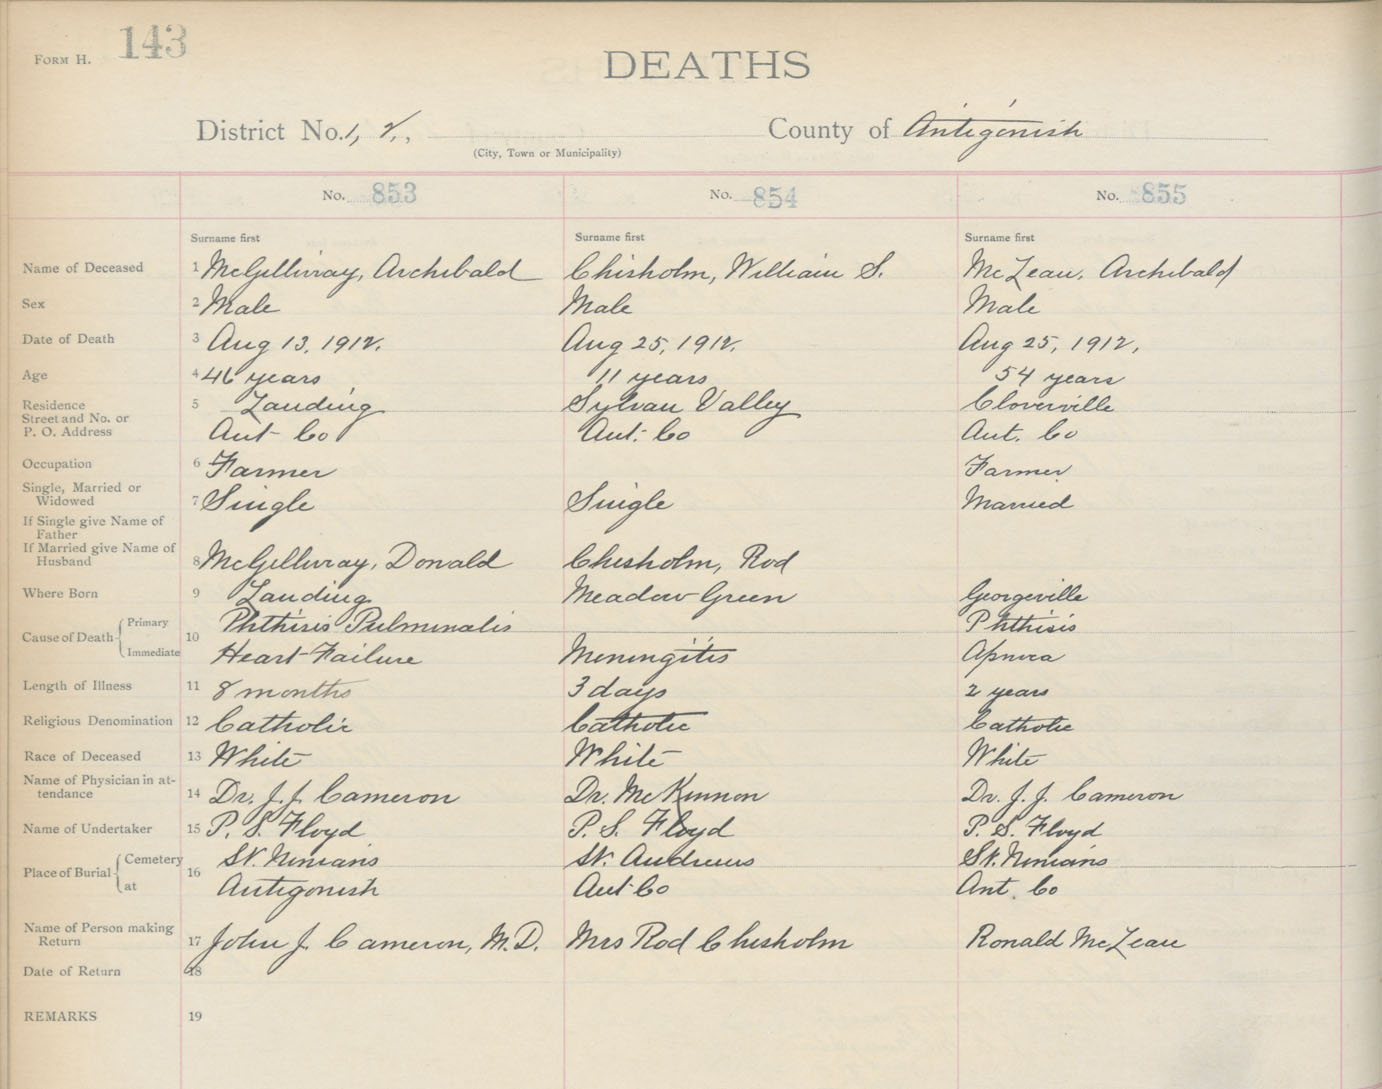 Form H. 143
DEATHS
District No. 1, 2,
County of Antigonish
(City, Town or Municipality)
No. 853 No. 854 No. 855
Surname first Surname first Surname first
Name of Deceased 1 McGillivray, Archibald Chisholm, William S. McLean, Archibald
Sex 2 Male Male Male
Date of Death 3 Aug 13, 1912. Aug 25, 1912. Aug 25, 1912,
Age 4 46 years 11 years 54 years
Residence 5 Landing Sylvan Valley Cloverville
Street and No. or
P. O. Address Ant Co Ant. Co Ant. Co
Occupation 6 Farmer Farmer
Single, Married or
Widowed 7 Single Single Married
If Single give Name of
Father
If Married give Name of
Husband 8 McGillivray, Donald Chisholm, Rod
Where Born 9 Landing Meadow Green Georgeville
Cause of Death Primary 10 Phthisis Pulmonalis Phthisis
Immediate Heart Failure Meningitis Apnoea
Length of Illness 11 8 months 3 days 2 years
Religious Denomination 12 Catholic Catholic Catholic
Race of Deceased 13 White White White
Name of Physician in at-
tendance 14 Dr. J. J. Cameron Dr. McKinnon Dr. J. J. Cameron
Name of Undertaker 15 P. S. Floyd P. S. Floyd P. S. Floyd
Place of Burial Cemetery 16 St. Ninians St. Andrews St. Ninians
at Antigonish Ant Co Ant. Co
Name of Person making
Return 17 John J. Cameron, M.D. Mrs Rod Chisholm Ronald McLean
Date of Return 18
REMARKS 19